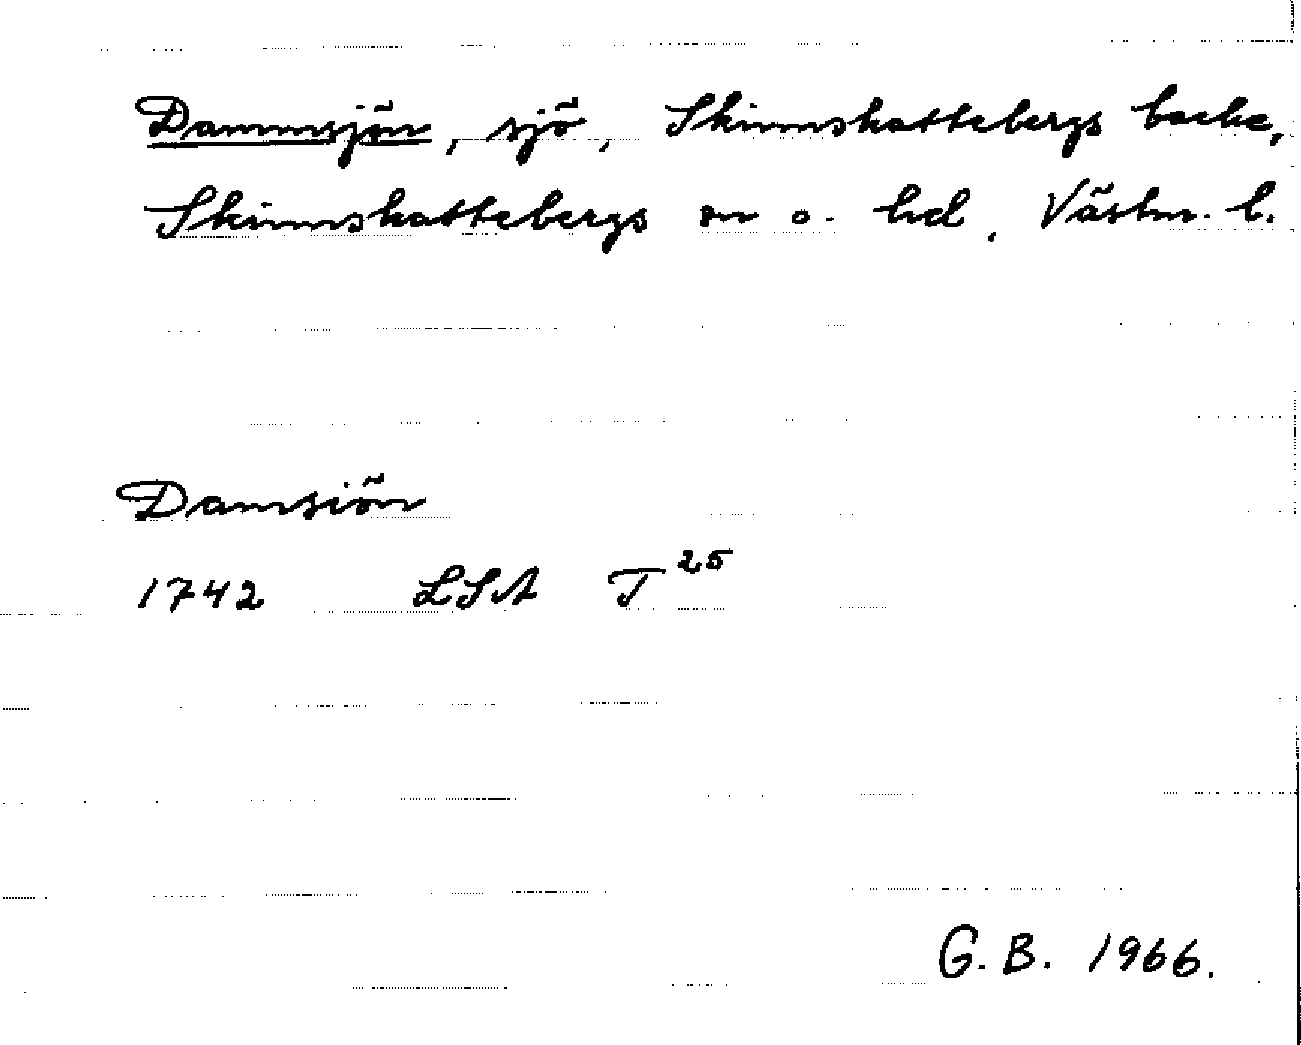 Dammsjön, sjö, Skinnskattebergs backe,
Skinnskattebergs sn o. hd. Västm. l.
Damsiön
1742 LSA T 25
G.B. 1966.